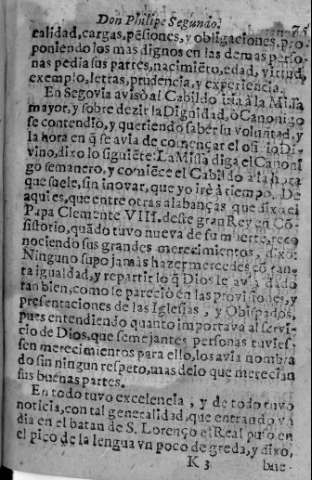 Don Philipe Segundo. 75
calidad, cargas, pẽsiones, y obligaciones, pro-
poniendo los mas dignos en las demas perso-
nas pedia sus partes, nacimiẽto, edad, virtud,
exemplo, letras, prudencia, y experiencia.
En Segovia avisò al Cabildo iria à la Missa
mayor, y sobre dezir la Dignidad, ò Canonigo
se contendio, y queriendo saber su voluntad, y
la hora en q̃ se avia de començar el ofi io Di-
vino, dixo lo siguiẽte: La Missa diga el Canoni
go semanero, y comiẽce el Cabildo à la hora
que suele, sin inovar, que yo irè à tiempo. De
aqui es, que entre otras alabanças que dixo el
Papa Clemente VIII. deste gran Rey en Cõ-
sistorio, quãdo tuvo nueva de su muerte, reco
nociendo sus grandes merecimientos, dixo:
Ninguno supo jamàs hazer mercedes cõ tan-
ta igualdad, y repartir lo q̃ Dios le avia dado
tan bien, como se pareciò en las provisiones, y
presentaciones de las Iglesias, y Obispados,
pues entendiendo quanto importava al servi-
cio de Dios, que semejantes personas tuvies-
sen merecimientos para ello, los avia nombra
do sin ningun respeto, mas delo que merecian
sus buenas partes.
En todo tuvo excelencia, y de todo tuvo
noticia, con tal generalidad, que entrando vn
dia en el batan de S. Lorenço el Real puso en
el pico de la lengua vn poco de greda, y dixo,
K 3 bue-